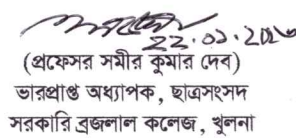 ২২.০১.২০২৬
(প্রফেসর সমীর কুমার দেব)
ভারপ্রাপ্ত অধ্যাপক, ছাত্রসংসদ
সরকারি ব্রজলাল কলেজ, খুলনা